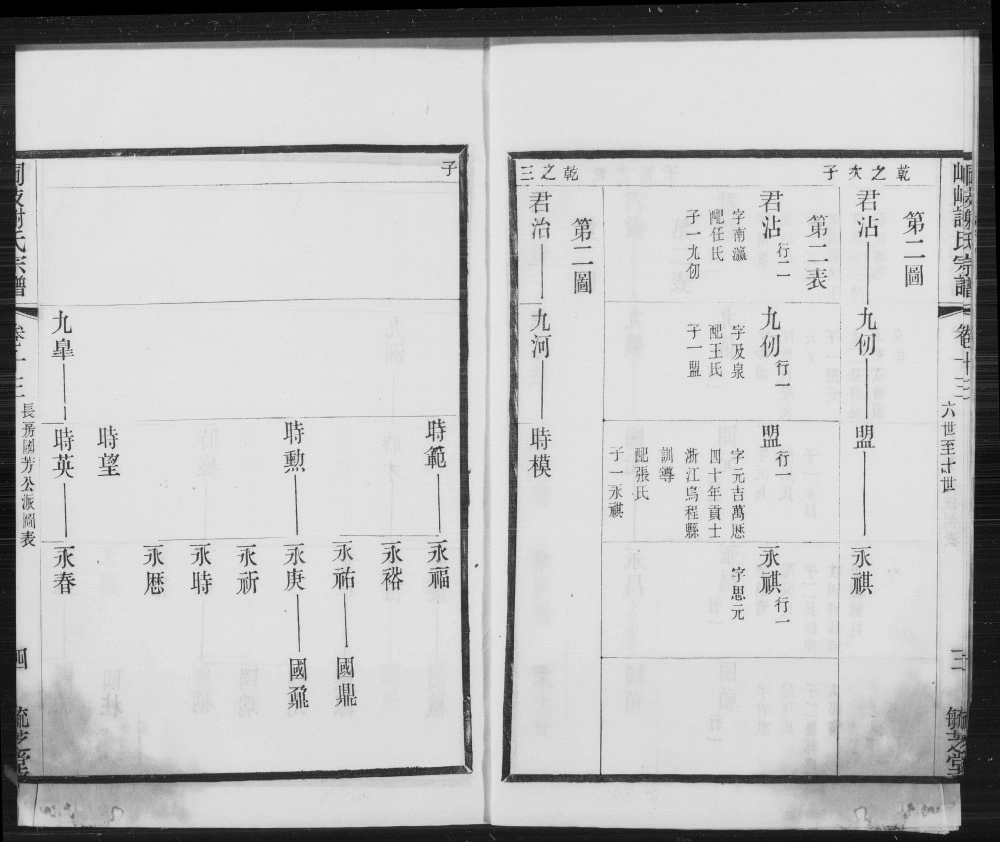 峒岐謝氏宗譜
卷十三
六世至十世
三
毓芝堂
乾之次子
第二圖
君沾 九仞 盟 永祺
第二表
君沾 行二
字南瀛
配任氏
子一九仞
九仞 行一
字及泉
配王氏
子一盟
盟 行一
字元吉萬厯
四十年貢士
浙江烏程縣
訓導
配張氏
子一永祺
永祺 行一
字思元
乾之三
子
第二圖
君治 九河 時模
時範 永福
永裕
永祐 國鼎
時勳 永庚 國鼐
永祈
永時
永厯
時望
九皐 時英 永春
峒岐謝氏宗譜
卷十三
長房國芳公派圖表
四
毓芝堂